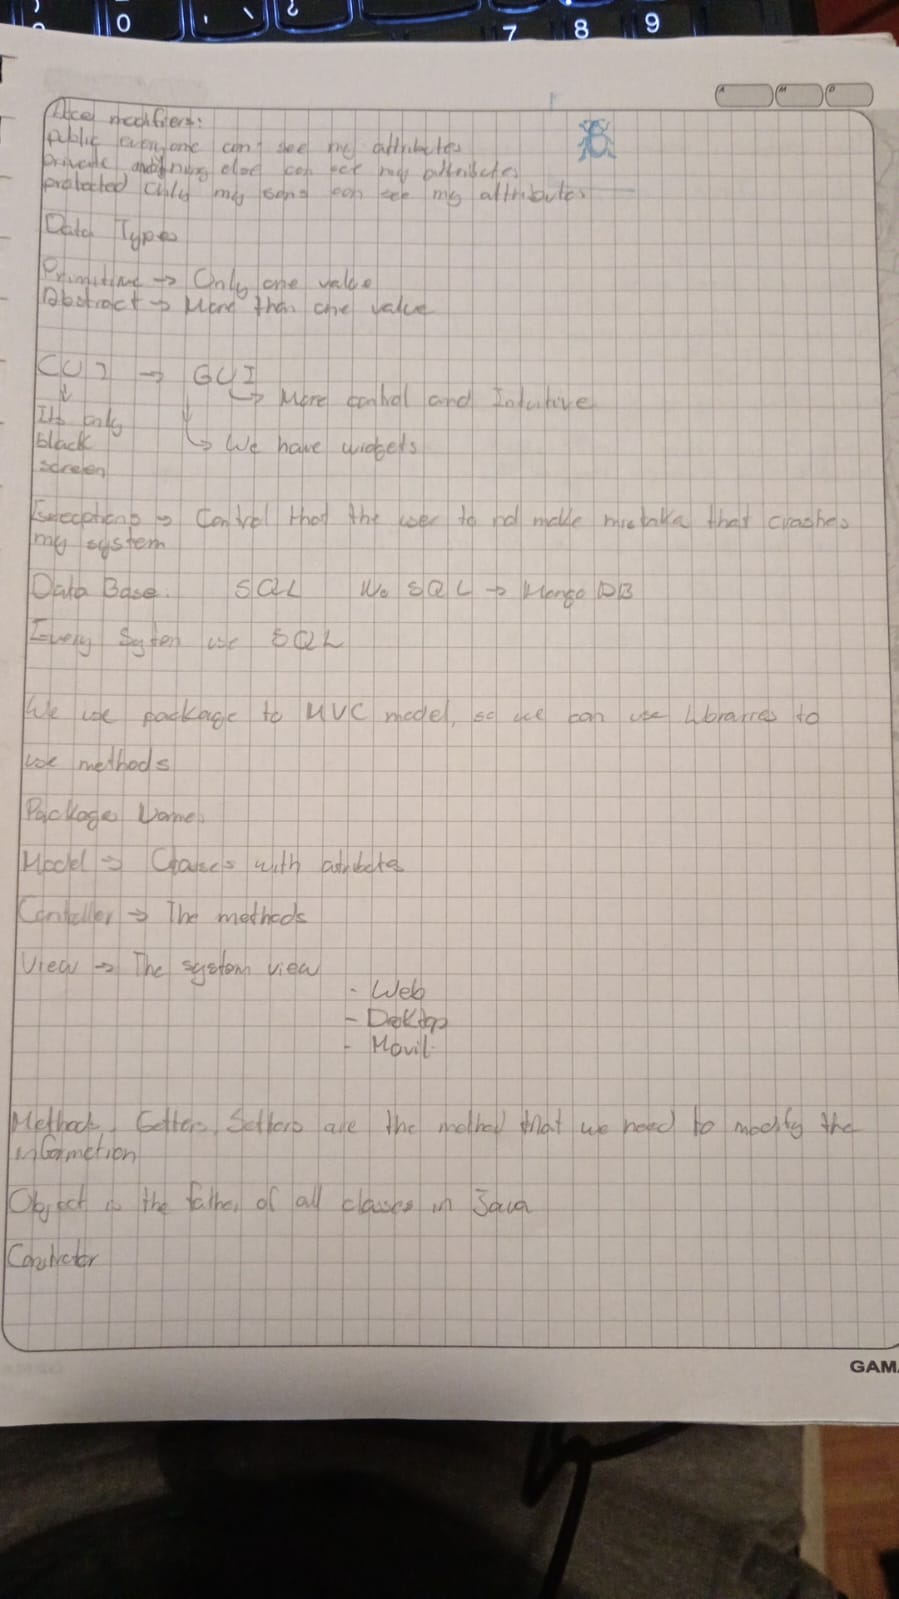 0 ¿ 7 8 9
A M D
modifiers:
public everyone can see my attributes
private else can see my attributes
protected Only my sons can see my attributes
Data Types
Primitive → Only one value
Abstract → More than one value
CUI → GUI
↳ More control and Intuitive
Its only
black
screen
↳ We have widgets
→ Control that the user to not make mistake that crashes
my system
Data Base. SQL No SQL → Mongo DB
Every System use SQL
We use package to MVC model, so we can use libraries to
use methods
Package Names
Model → with atributes
Controller → The methods
View → The system view
- Web
- Desktop
- Movil
Getters, Setters are the method that we need to modify the
information
Object is the father of all classes in Java
GAMA